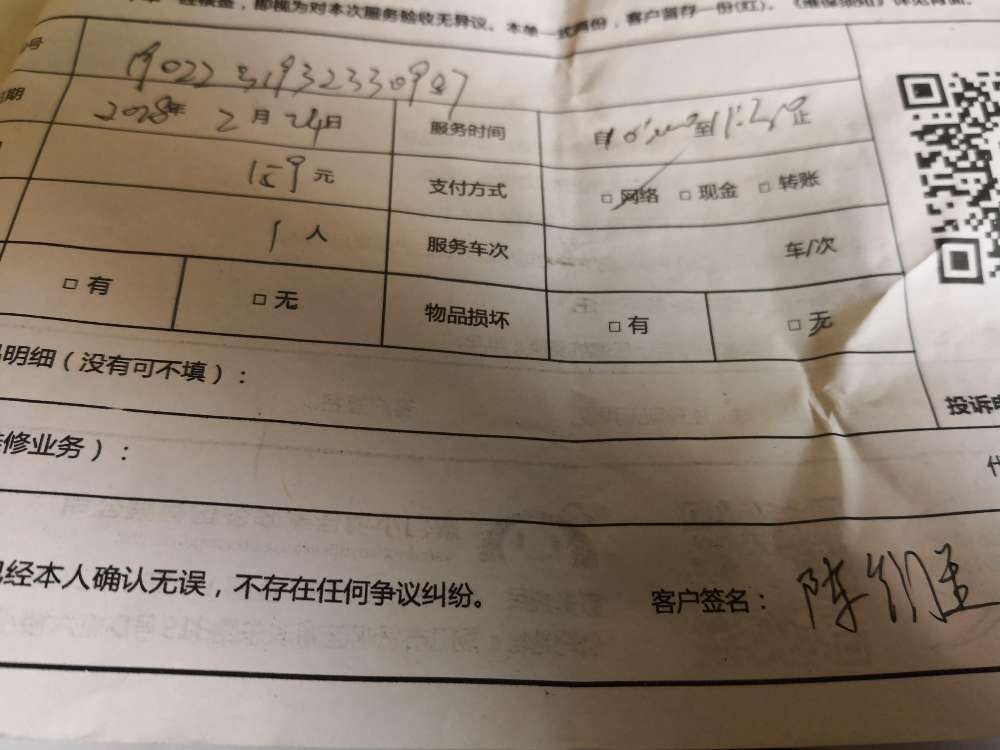 一经核签，即视为对本次服务验收无异议。本单一式两份，客户留存一份(红)。《维保须知》详见背面。
号
期 年 2月24日 服务时间 自 到 止
159元 支付方式 □ 网络 □ 现金 □ 转账
1人 服务车次 车/次
□ 有 □ 无 物品损坏 □ 有 □ 无
明细（没有可不填）：
投诉
修业务）：
经本人确认无误，不存在任何争议纠纷。 客户签名： 陈